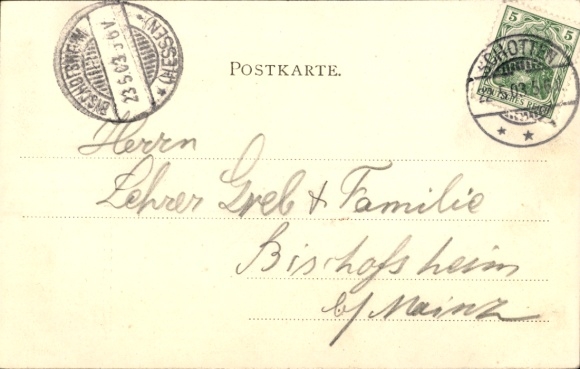 BISCHOFSHEIM (HESSEN)
23.5.03.
POSTKARTE.
5 5
SCHOTTEN
DEUTSCHES REICH
Herrn
Lehrer Greb & Familie
Bischofsheim
b/ Mainz